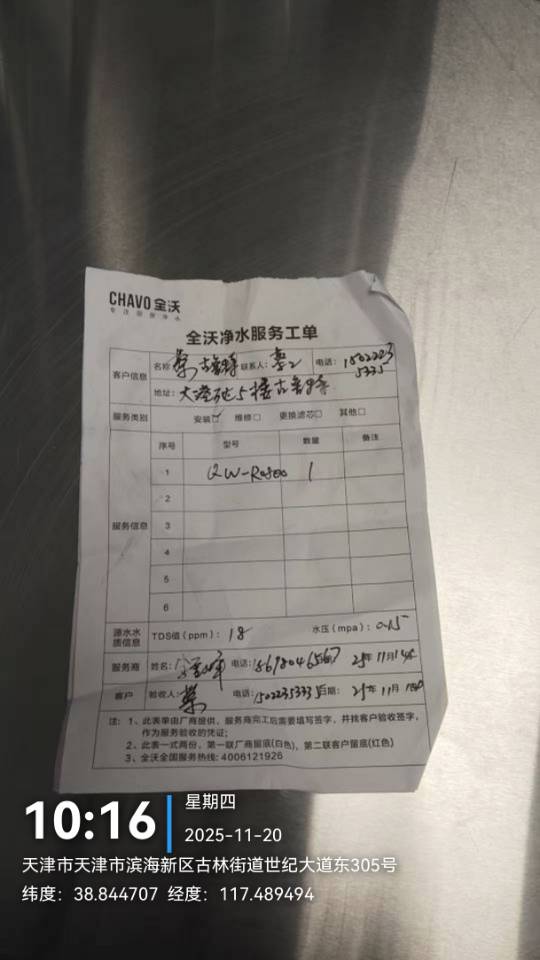 CHAVO 全沃
专注极致净水
全沃净水服务工单
客户信息 名称 联系人： 电话：1502223
5335
地址：大港
服务类别 安装☑ 维修□ 更换滤芯□ 其他□
服务信息 序号 型号 数量 备注
1 QW-Ro800 1
2
3
4
5
6
源水水质信息 TDS值（ppm）：18 水压（mpa）：0.15
服务商 姓名： 电话：
客户 验收人： 电话： 日期：
注：1、此表单由厂商提供，服务商完工后需要填写签字，并找客户验收签字，
作为服务验收的凭证；
2、此表一式两份，第一联厂商留底(白色)，第二联客户留底(红色)
3、全沃全国服务热线：4006121926
10:16
星期四
2025-11-20
天津市天津市滨海新区古林街道世纪大道东305号
纬度：38.844707 经度：117.489494